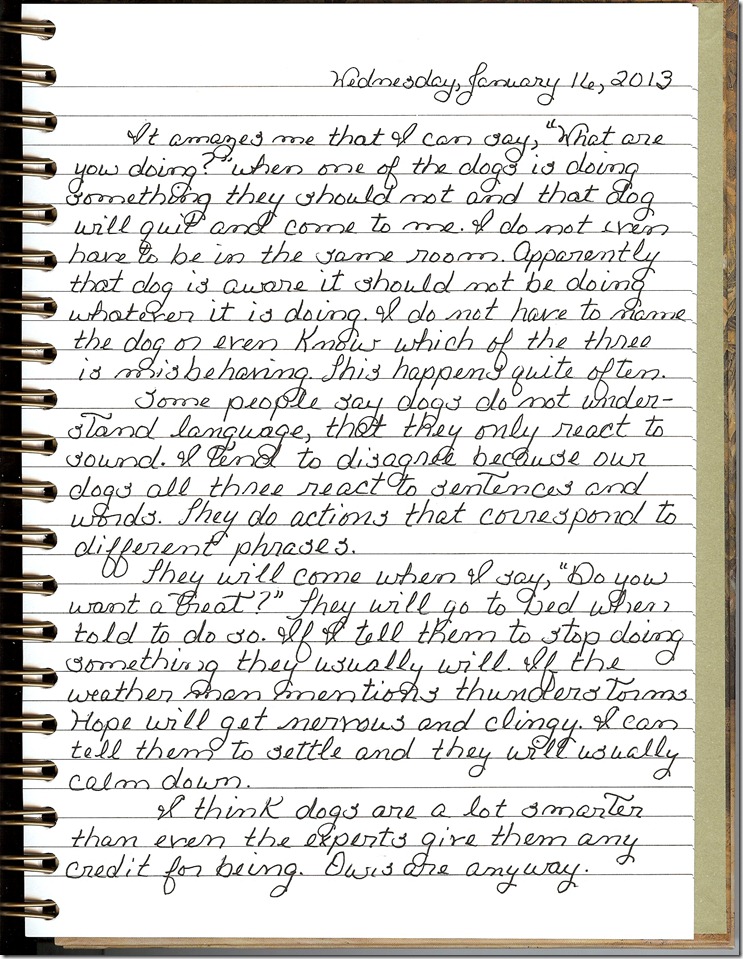 Wednesday, January 16, 2013
It amazes me that I can say, "What are
you doing?" when one of the dogs is doing
something they should not and that dog
will quit and come to me. I do not even
have to be in the same room. Apparently
that dog is aware it should not be doing
whatever it is doing. I do not have to name
the dog or even know which of the three
is misbehaving. This happens quite often.
Some people say dogs do not under-
stand language, that they only react to
sound. I tend to disagree because our
dogs all three react to sentences and
words. They do actions that correspond to
different phrases.
They will come when I say, "Do you
want a treat?" They will go to bed when
told to do so. If I tell them to stop doing
something they usually will. If the
weather man mentions thunderstorms
Hope will get nervous and clingy. I can
tell them to settle and they will usually
calm down.
I think dogs are a lot smarter
than even the experts give them any
credit for being. Ours are anyway.